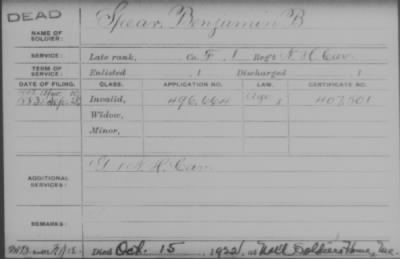 DEAD
Spear, Benjamin B
NAME OF SOLDIER:
SERVICE: Late rank, Co. F, 1 Reg't N. H. Cav.
TERM OF SERVICE: Enlisted , 1 Discharged , 1
DATE OF FILING. CLASS. APPLICATION NO. LAW. CERTIFICATE NO.
Invalid, 496,664 407,501
Widow,
Minor,
ADDITIONAL SERVICES: G 1 N. H. Cav.
REMARKS:
Died Oct. 15, 1922, at Nat'l Soldiers Home, Me.